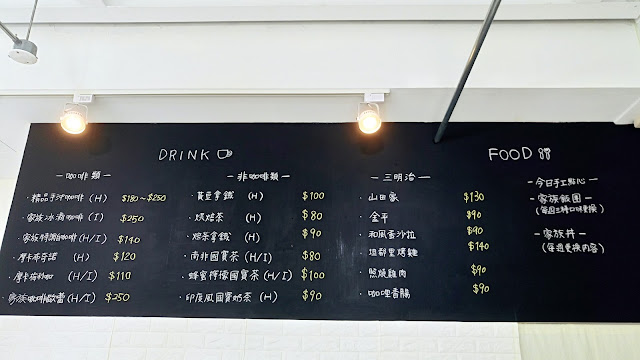 DRINK
— 咖啡類 —
· 精品手沖咖啡 (H) $180~$250
· 家族冰滴咖啡 (I) $250
· 家族特調咖啡 (H/I) $140
· 摩卡布奇諾 (H) $120
· 摩卡 (H/I) $110
· 家族咖啡歐蕾 (H/I) $250
— 非咖啡類 —
· 黃豆拿鐵 (H) $100
· 焙焙茶 (H) $80
· 焙茶拿鐵 (H) $90
· 南非國寶茶 (H/I) $80
· 蜂蜜檸檬國寶茶 (H/I) $100
· 印度風國寶奶茶 (H) $90
FOOD
— 三明治 —
· 山田家 $130
· 金平 $90
· 和風香沙拉 $90
· 坦都里烤雞 $140
· 照燒雞肉 $90
· 咖哩香腸 $90
— 今日手工點心 —
- 家族飯團 -
(每週三種口味更換)
- 家族丼 -
(每週更換內容)